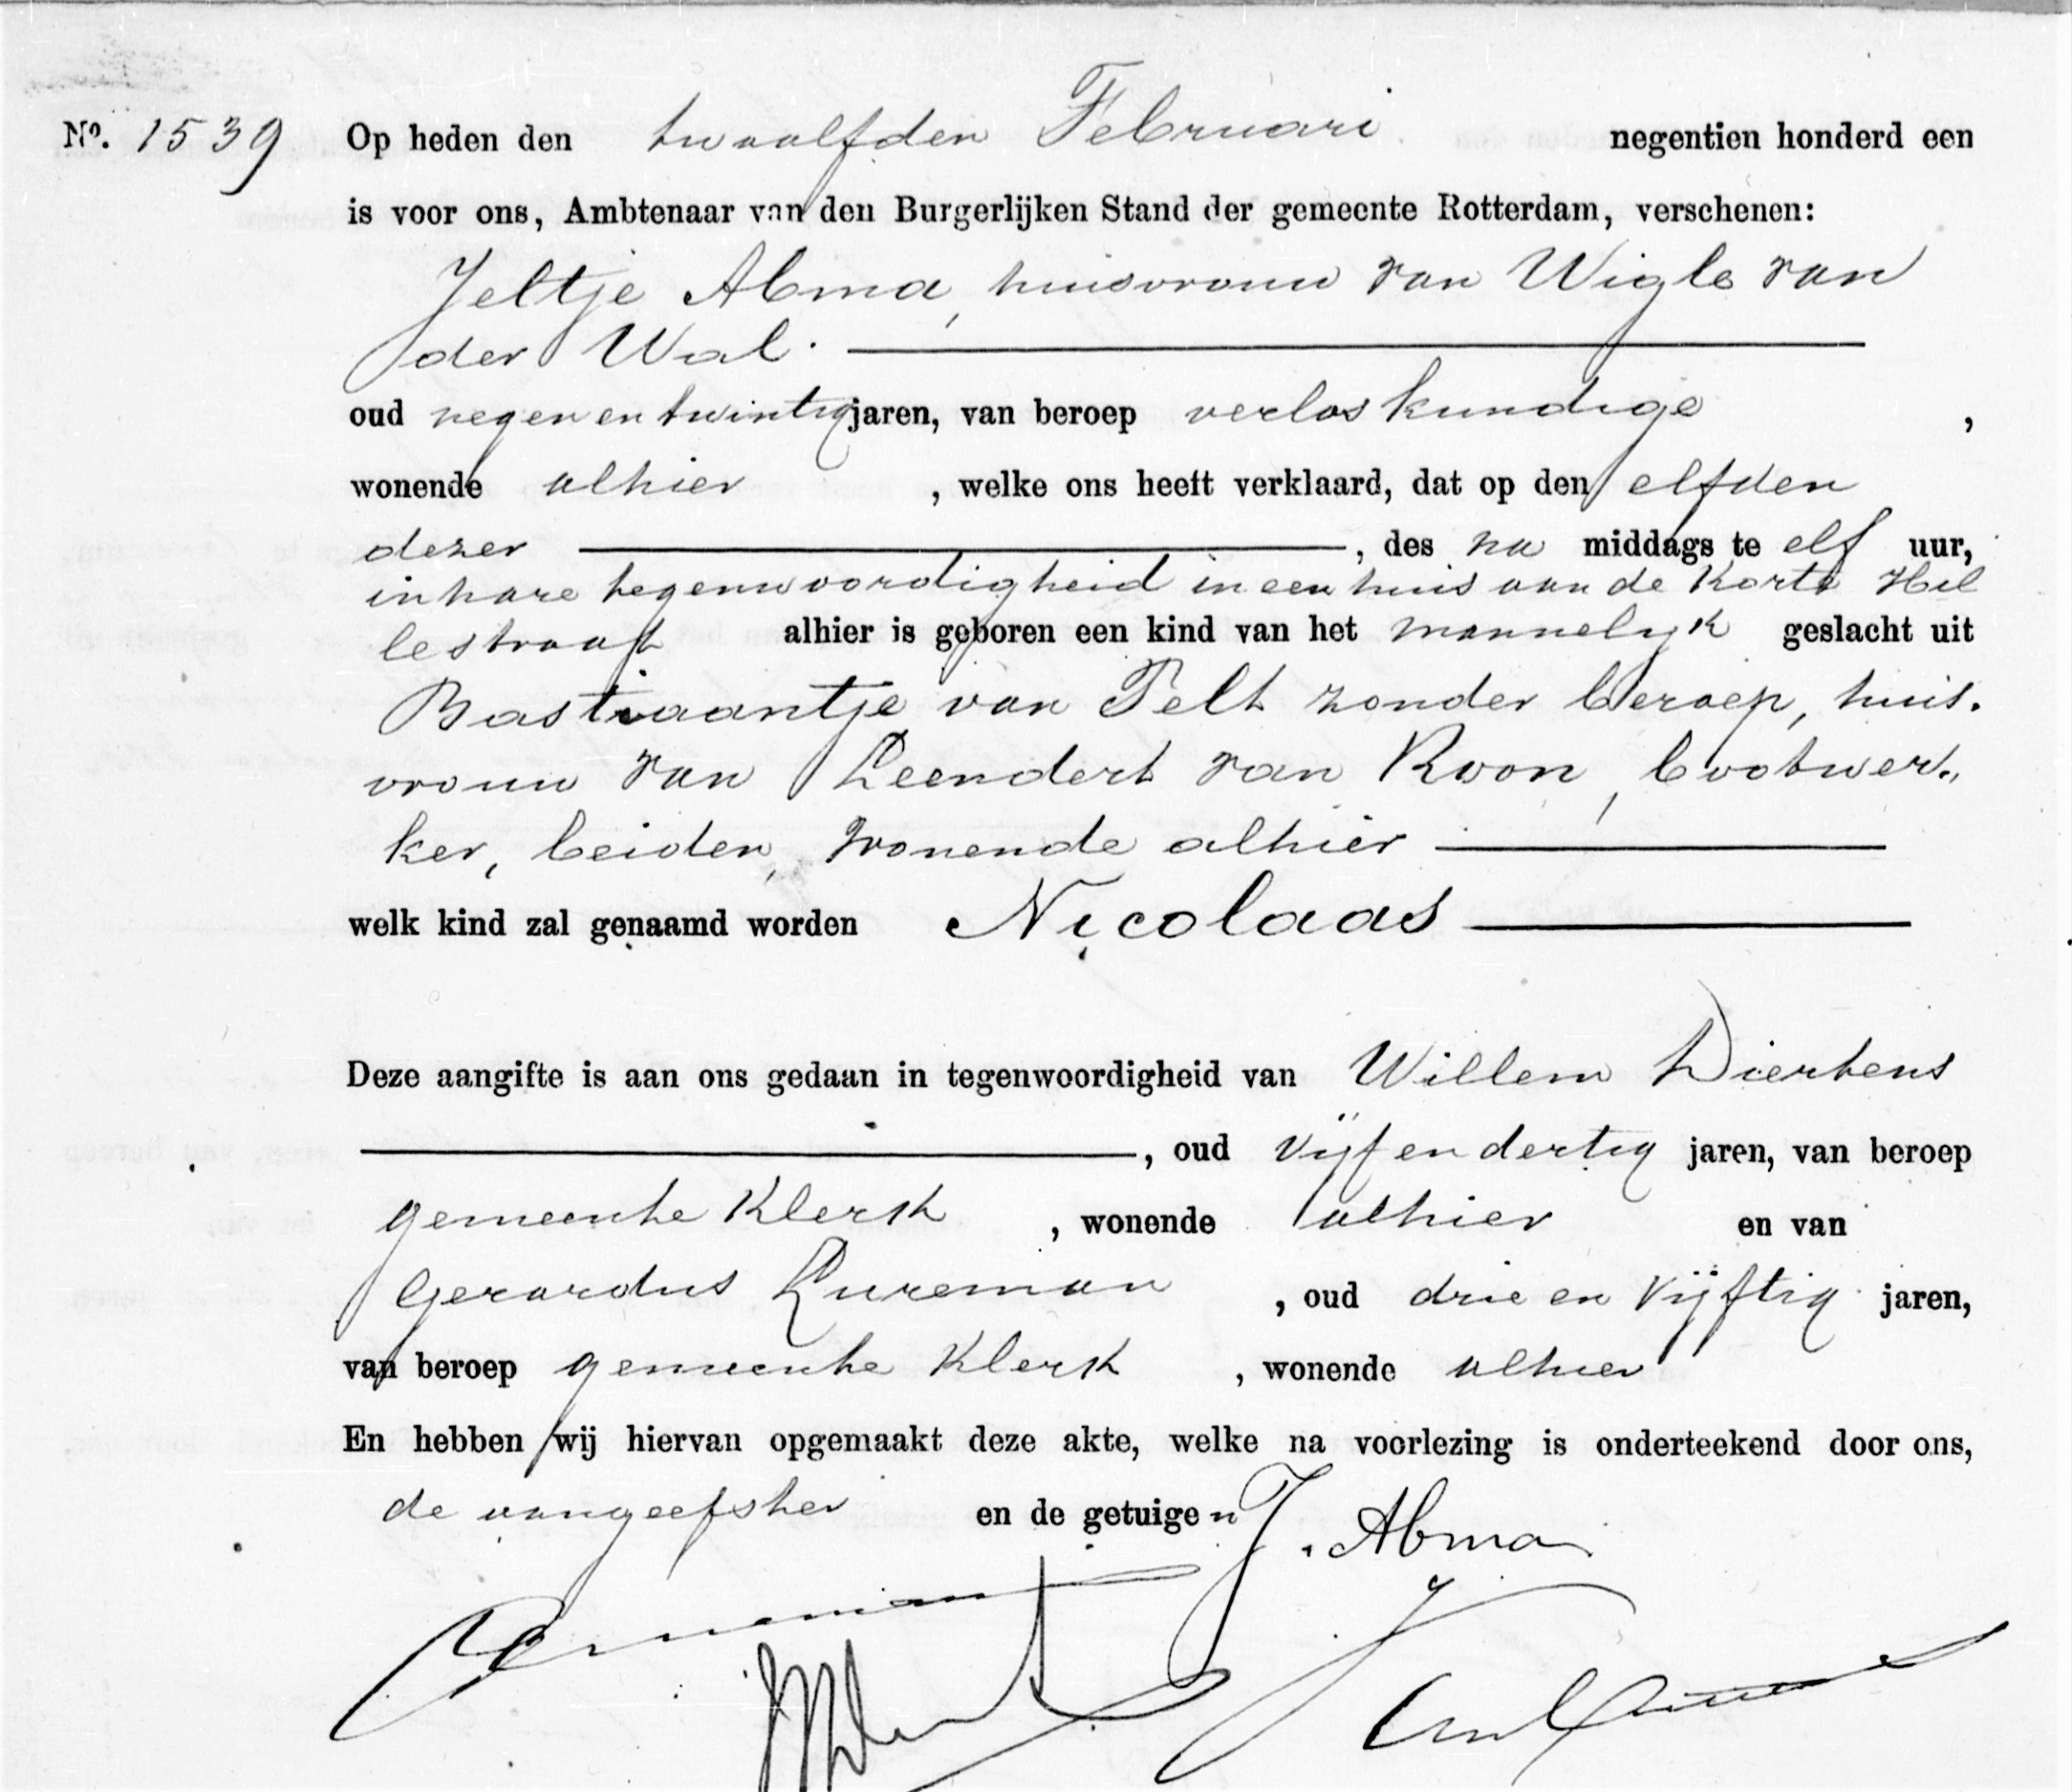 No. 1539 Op heden den twaalfden Februari negentien honderd een
is voor ons, Ambtenaar van den Burgerlijken Stand der gemeente Rotterdam, verschenen:
Jeltje Abma, huisvrouw van Wigle van
der Wal.
oud negen en twintig jaren, van beroep verloskundige,
wonende alhier, welke ons heeft verklaard, dat op den elfden
dezer, des na middags te elf uur,
in hare tegenwoordigheid in een huis aan de Korte Hil
lestraat alhier is geboren een kind van het mannelijk geslacht uit
Bastiaantje van Pelt zonder beroep, huis.
vrouw van Leendert van Roon, bootwer.,
ker, beiden, wonende alhier
welk kind zal genaamd worden Nicolaas
Deze aangifte is aan ons gedaan in tegenwoordigheid van Willem Dierkens
, oud vijf en dertig jaren, van beroep
gemeente klerk, wonende alhier en van
Gerardus Lureman, oud drie en vijftig jaren,
van beroep gemeente klerk, wonende alhier
En hebben wij hiervan opgemaakt deze akte, welke na voorlezing is onderteekend door ons,
de aangeefster en de getuigen
J. Abma